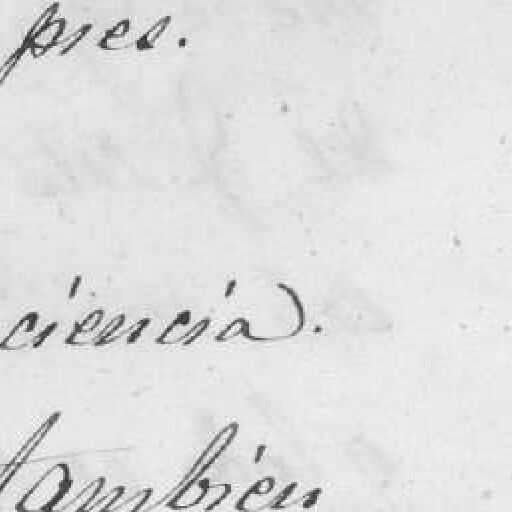 pies.
ciencia).
también